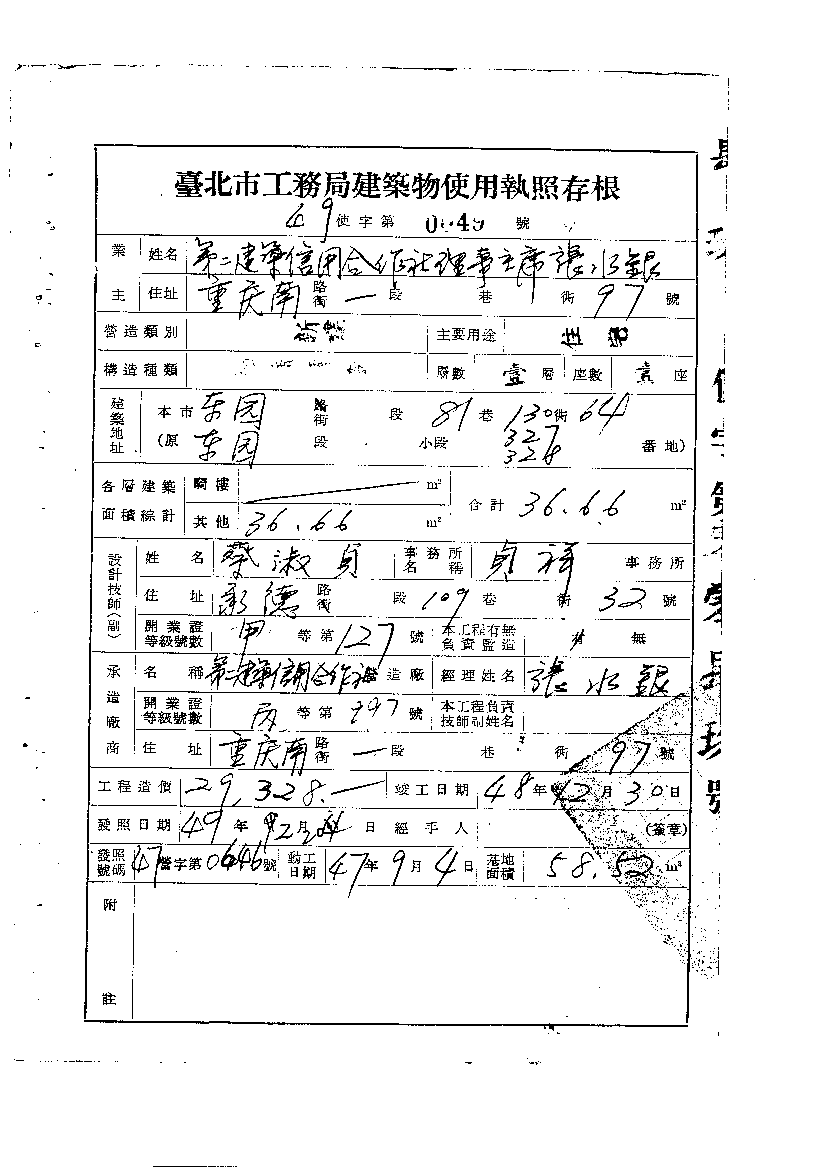 臺北市工務局建築物使用執照存根
49使字第 號
業主 姓名 第二建築信用合作社理事主席張水銀
住址 重庆南路街一段 巷 衖97號
營造類別 新 主要用途 住
構造種類 層數 壹層 座數 壹座
建築地址 本市东园路街 段81巷130衖64
(原 东园 段 小段 327 328 番地)
各層建築面積綜計 騎樓 m² 合計36.66 m²
其他 36.66 m²
設計技師(副) 姓名 蔡淑貞 事務所名稱 貞祥 事務所
住址 承德路街 段109巷 衖32號
開業證等級號數 甲等第127號 本工程有無負責監造 無
承造廠商 名稱 第二建築信用合作社 造廠 經理姓名 張水銀
開業證等級號數 丙等第 號 本工程負責技師副姓名
住址 重庆南路街一段 巷 衖97號
工程造價 29,328.一 竣工日期 48年12月30日
發照日期 49年 月 日 經手人 (簽章)
發照號碼 47營字第0646號 動工日期 47年9月4日 落地面積 58.52 m²
附註